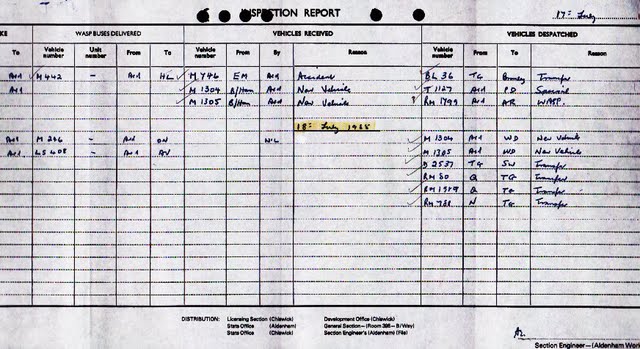 INSPECTION REPORT 17th July
CE WASP BUSES DELIVERED VEHICLES RECEIVED VEHICLES DESPATCHED
To Vehicle number Unit number From To Vehicle number From By Reason Vehicle number From To Reason
Ard M 442 - Ard HL M 746 EM Ard Accident BL 36 TG Bromley Transfer
Ard M 1304 B/Ham Ard New Vehicle T 1127 Ard PD Special
M 1305 B/Ham Ard New Vehicle RM 1799 Ard AR WASP.
18th July 1985
Ard M 266 - Ard ON NIL M 1304 Ard WD New Vehicle
Ard LS 408 - Ard AV M 1305 Ard WD New Vehicle
D 2537 TG SW Transfer
RM 80 Q TG Transfer
RM 1989 Q TG Transfer
RM 738 N TG Transfer
DISTRIBUTION: Licensing Section (Chiswick) Development Office (Chiswick)
Stats Office (Aldenham) General Section—(Room 395—B/Way)
Stats Office (Chiswick) Section Engineer's (Aldenham) (File)
Section Engineer—(Aldenham Wor